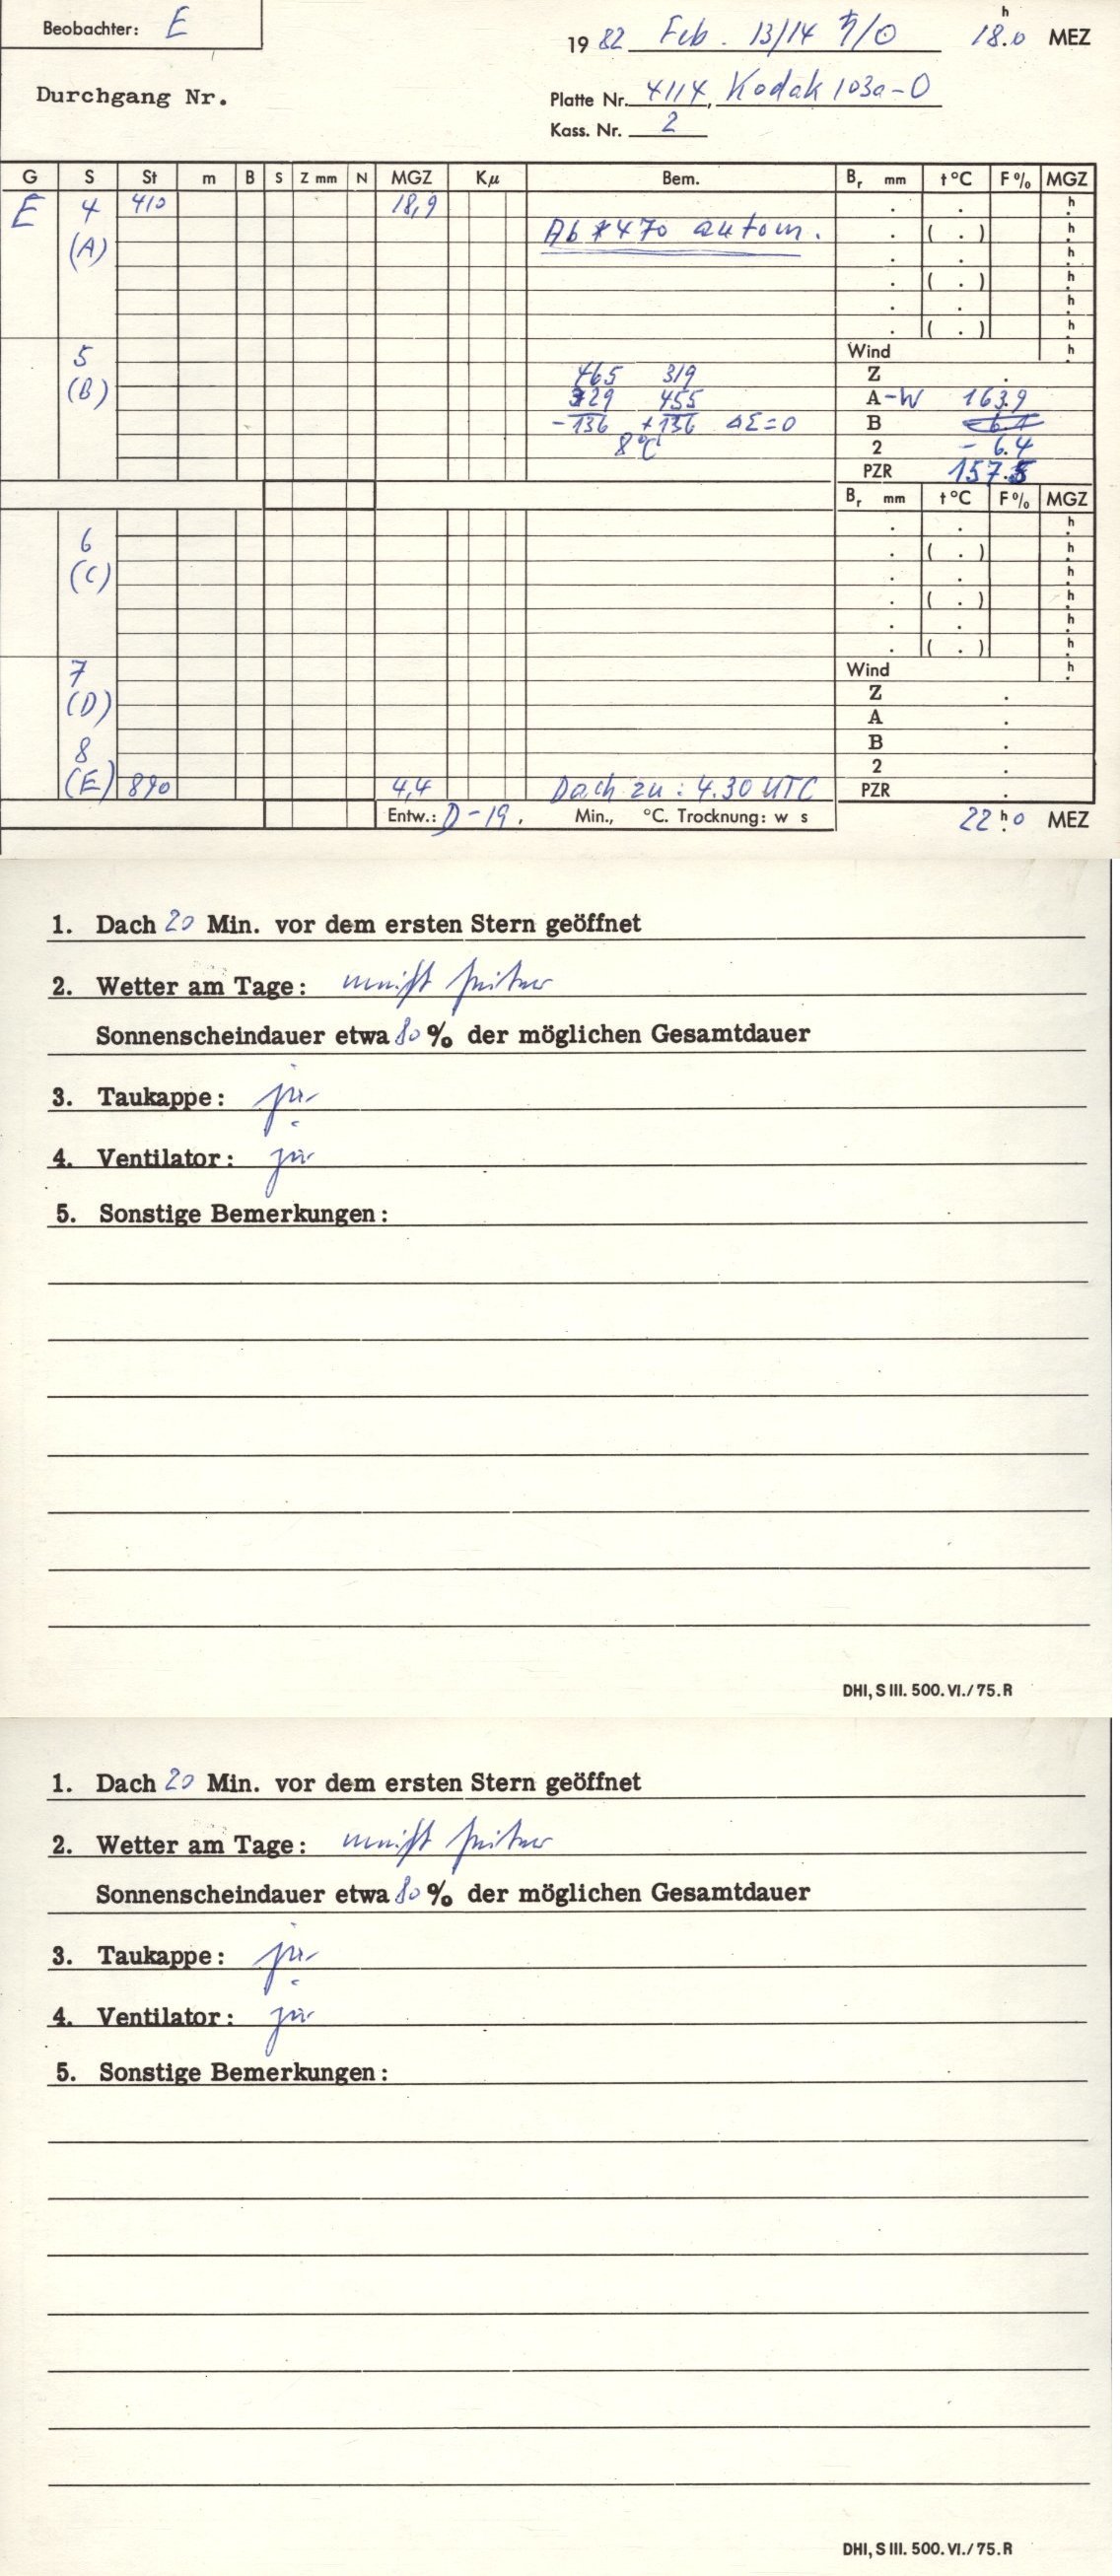 Beobachter: E
1982 Feb. 13/14 ♄/☉ 18.0 h MEZ
Durchgang Nr.
Platte Nr. 4114, Kodak 103a-O
Kass. Nr. 2
G S St m B S Z mm N MGZ Kμ Bem. Br mm t°C F% MGZ
E 4 410 18,9 . . h
(A) Ab *470 autom. . ( . ) h
. . h
. ( . ) h
. . h
. ( . ) h
5 Wind h
465 319 Z .
(B) 329 455 A-W 163.9
-136 +136 ΔΣ=0 B 6.1
8°C 2 - 6.4
PZR 157.5
Br mm t°C F% MGZ
. . h
6 . ( . ) h
(C) . . h
. ( . ) h
. . h
. ( . ) h
7 Wind h
(D) Z .
A .
8 B .
2 .
(E) 890 4,4 Dach zu: 4.30 UTC PZR .
Entw.: D-19, Min., °C. Trocknung: w s 22 h 0 MEZ
1. Dach 20 Min. vor dem ersten Stern geöffnet
2. Wetter am Tage: meist heiter
Sonnenscheindauer etwa 80 % der möglichen Gesamtdauer
3. Taukappe: ja
4. Ventilator: ja
5. Sonstige Bemerkungen:
DHI, S III. 500. VI./75. R
1. Dach 20 Min. vor dem ersten Stern geöffnet
2. Wetter am Tage: meist heiter
Sonnenscheindauer etwa 80 % der möglichen Gesamtdauer
3. Taukappe: ja
4. Ventilator: ja
5. Sonstige Bemerkungen:
DHI, S III. 500. VI./75. R